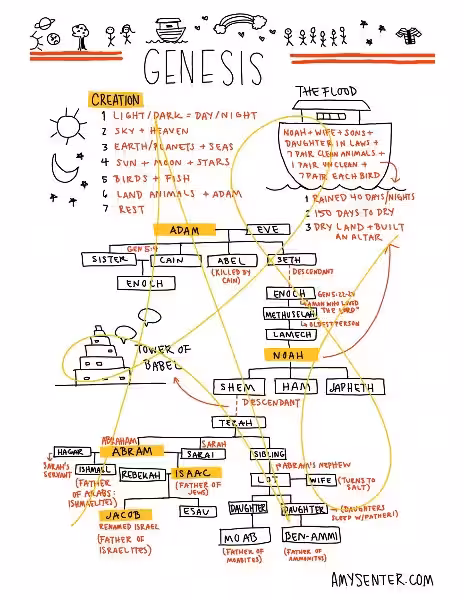 GENESIS
CREATION
1 LIGHT/DARK = DAY/NIGHT
2 SKY + HEAVEN
3 EARTH/PLANETS + SEAS
4 SUN + MOON + STARS
5 BIRDS + FISH
6 LAND ANIMALS + ADAM
7 REST
THE FLOOD
NOAH + WIFE + SONS +
DAUGHTER IN LAWS +
7 PAIR CLEAN ANIMALS +
1 PAIR UNCLEAN +
7 PAIR EACH BIRD
1 RAINED 40 DAYS/NIGHTS
2 150 DAYS TO DRY
3 DRY LAND + BUILT
AN ALTAR
ADAM
EVE
GEN 5:4
SISTER
CAIN
ABEL
SETH
(KILLED BY
CAIN)
DESCENDANT
ENOCH
ENOCH
GEN 5:22-24
A MAN WHO LIVED
THE LORD"
METHUSELAH
OLDEST PERSON
LAMECH
NOAH
TOWER OF
BABEL
SHEM
HAM
JAPHETH
DESCENDANT
TERAH
ABRAHAM
SARAH
HAGAR
ABRAM
SARAI
SIBLING
SARAH'S
SERVANT
ABRAM'S NEPHEW
ISHMAEL
REBEKAH
ISAAC
LOT
WIFE
(TURNS TO
SALT)
(FATHER
OF ARABS:
ISHMAELITES)
(FATHER OF
JEWS)
JACOB
ESAU
DAUGHTER
DAUGHTER
(DAUGHTERS
SLEEP W/FATHER!)
RENAMED ISRAEL
(FATHER OF
ISRAELITES)
MOAB
BEN-AMMI
(FATHER OF
MOABITES)
(FATHER OF
AMMONITES)
AMYSENTER.COM